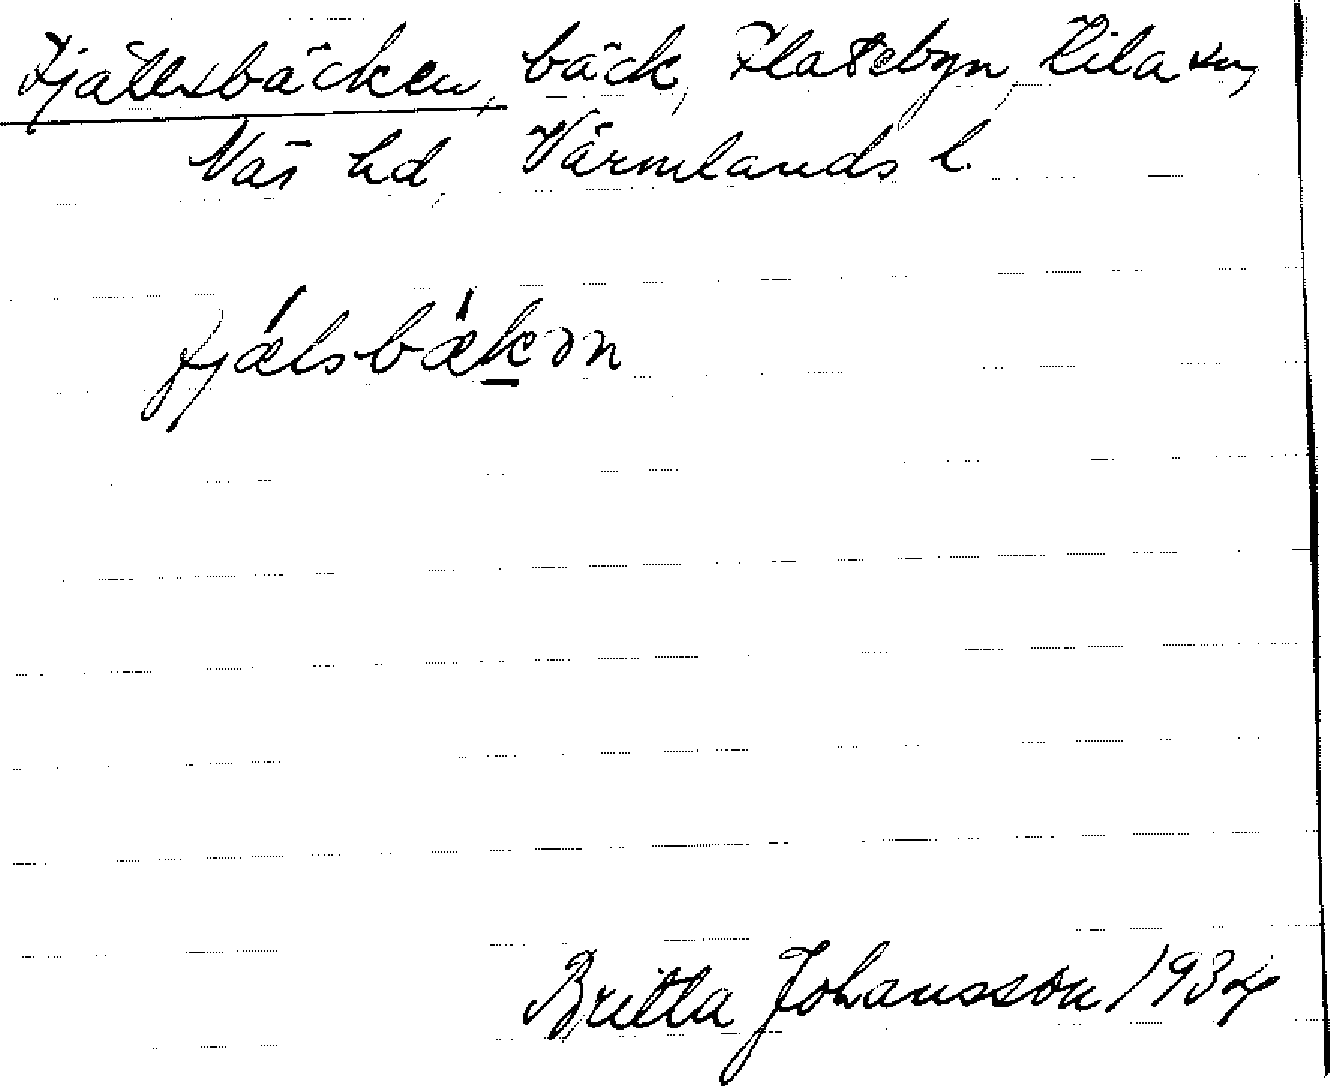 Fjällsbäcken, bäck, Flatebyn, Kila sn,
Näs hd, Värmlands l.
fjǽlsbǽkən
Britta Johansson 1934